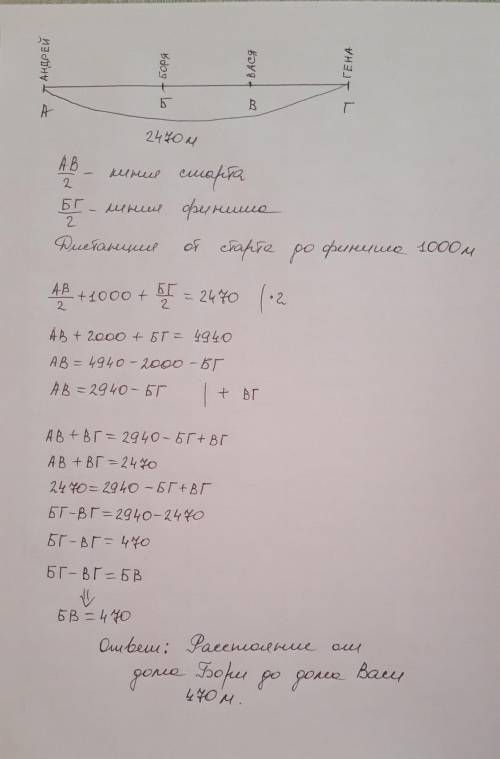 АНДРЕЙ БОРЯ ВАСЯ ГЕНА
А Б В Г
2470 м
АВ/2 – линия старта
БГ/2 – линия финиша
Дистанция от старта до финиша 1000 м
АВ/2 + 1000 + БГ/2 = 2470 | · 2
АВ + 2000 + БГ = 4940
АВ = 4940 – 2000 – БГ
АВ = 2940 – БГ | + ВГ
АВ + ВГ = 2940 – БГ + ВГ
АВ + ВГ = 2470
2470 = 2940 – БГ + ВГ
БГ – ВГ = 2940 – 2470
БГ – ВГ = 470
БГ – ВГ = БВ
⇓
БВ = 470
Ответ: Расстояние от
дома Бори до дома Васи
470 м.